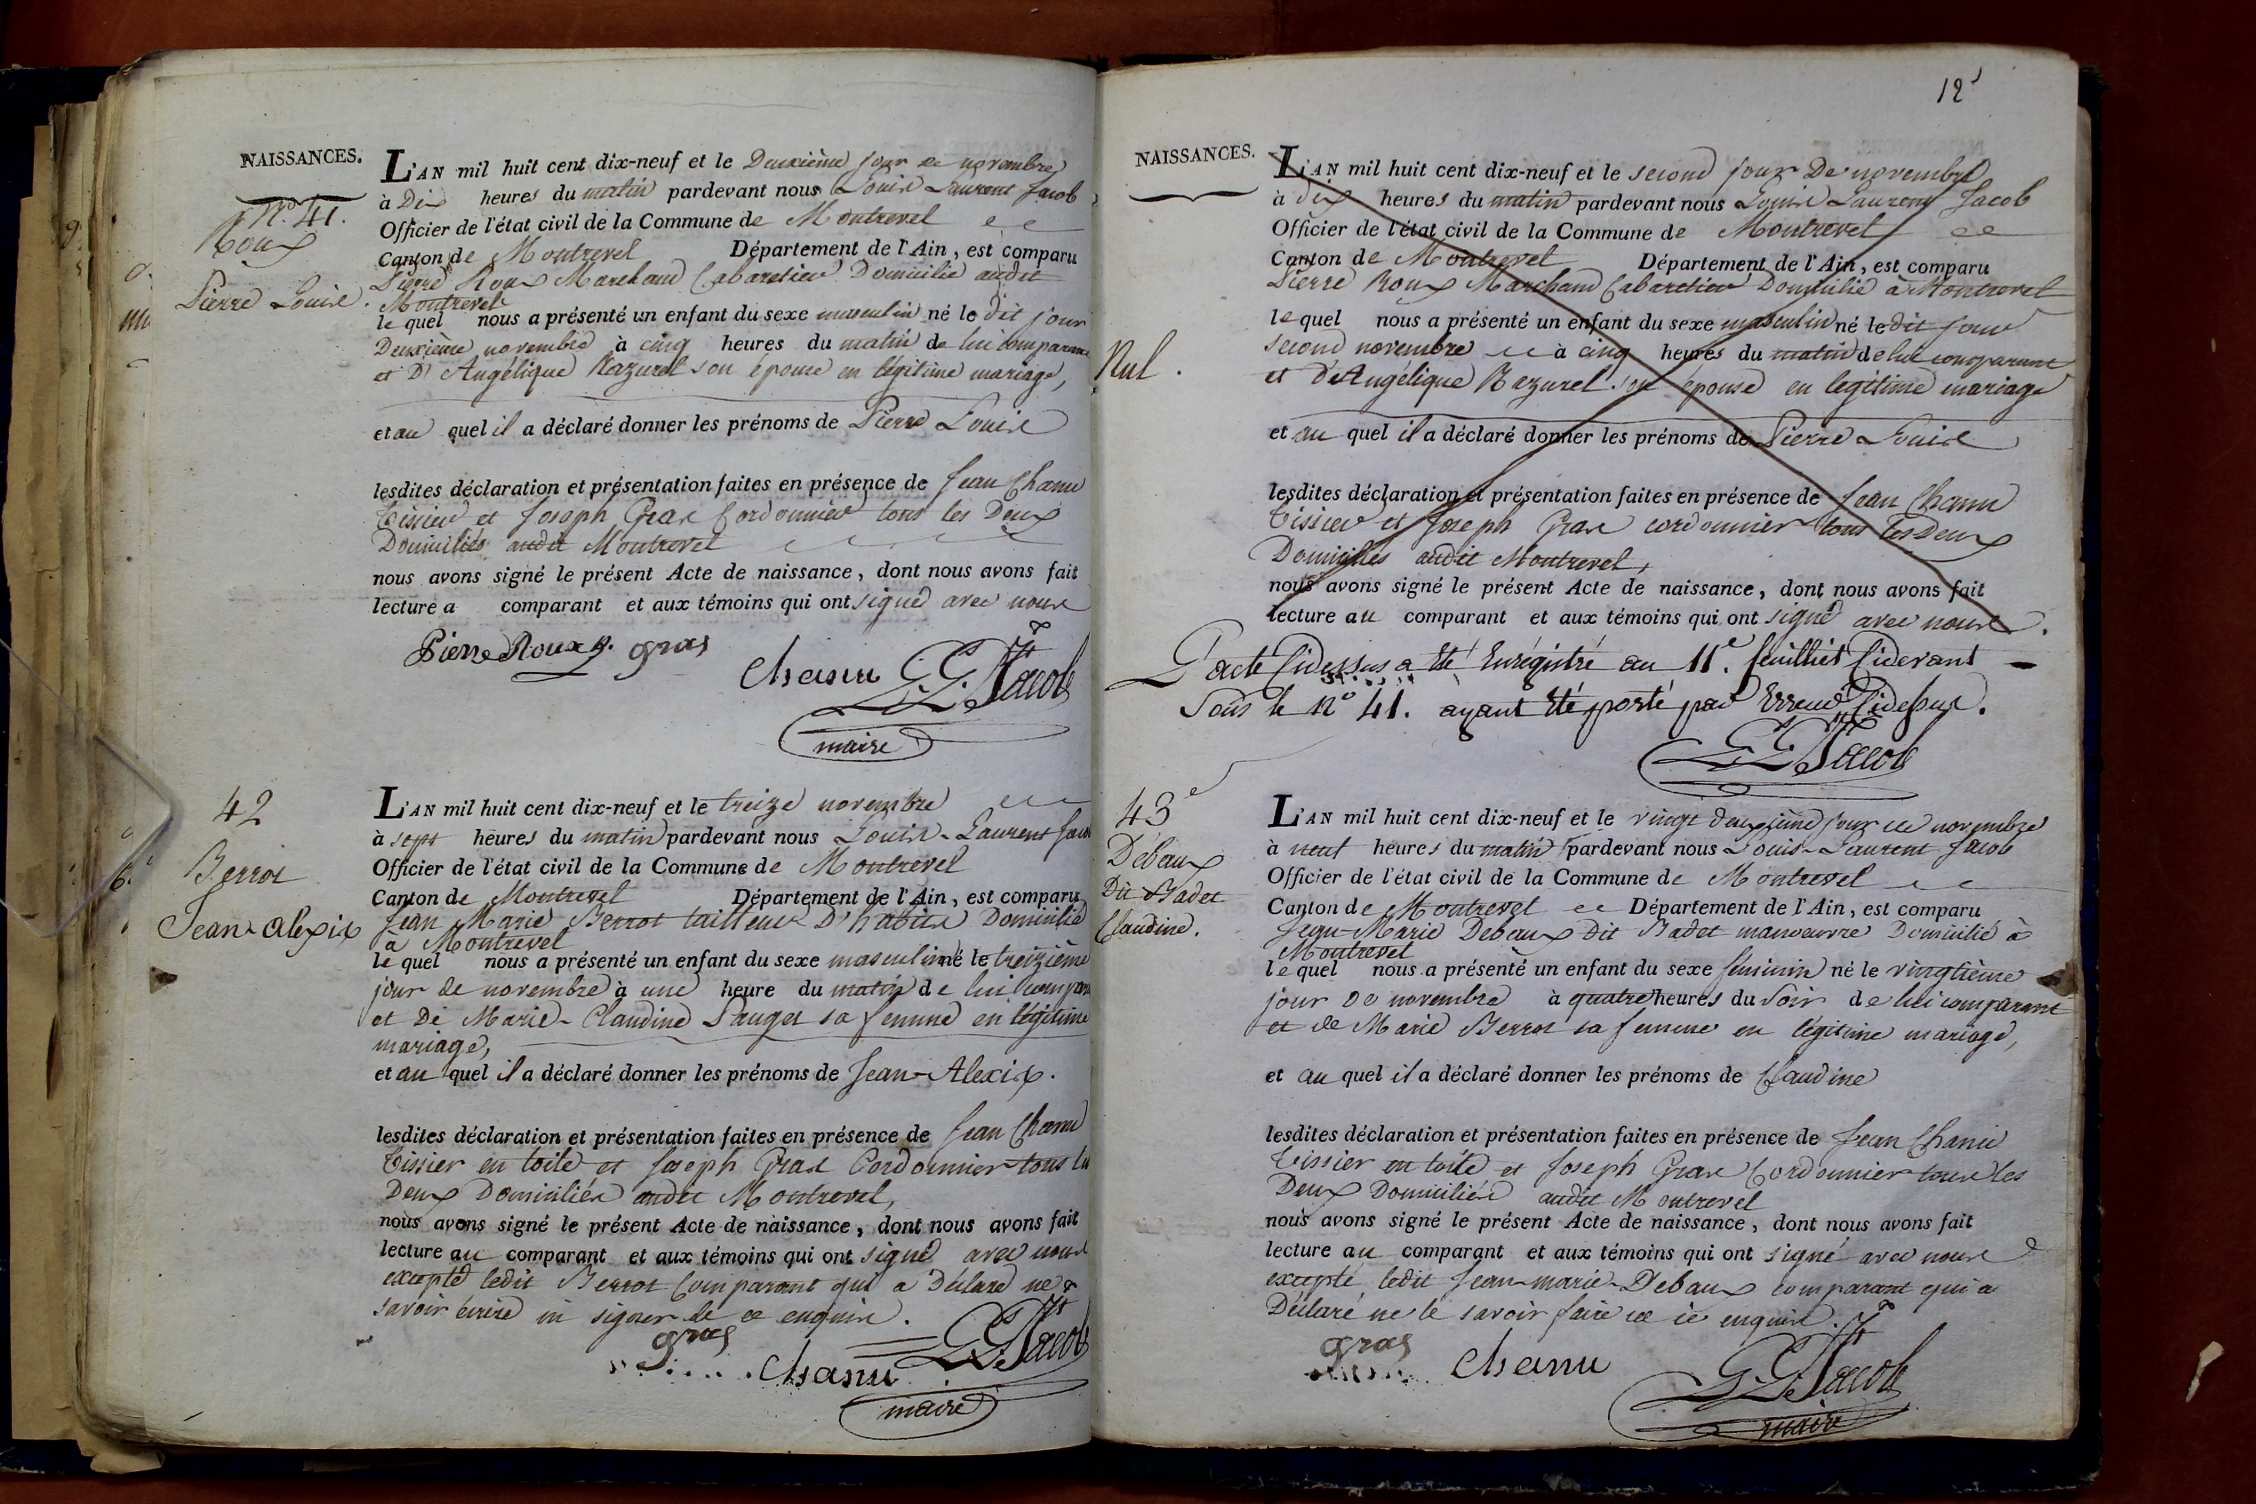 NAISSANCES.
N.o 41.
Roux
Pierre Louis.
L'AN mil huit cent dix-neuf et le Deuxième jour de novembre
à Dix heures du matin pardevant nous Louis Laurent Jacob
Officier de l'état civil de la Commune de Montrevel
Canton de Montrevel Département de l'Ain, est comparu
Pierre Roux Marchand Cabaretier Domicilié audit
Montrevel
le quel nous a présenté un enfant du sexe masculin né le dit jour
Deuxième novembre à cinq heures du matin de lui comparant
et D'Angélique Razurel son épouse en légitime mariage,
et au quel il a déclaré donner les prénoms de Pierre Louis
lesdites déclaration et présentation faites en présence de Jean Chanu
Tissier et Joseph Gras Cordonnier tous les Deux
Domiciliés audit Montrevel
nous avons signé le présent Acte de naissance, dont nous avons fait
lecture a comparant et aux témoins qui ont signé avec nous
Pierre Roux gras
Chanu Jacob
maire
42
Berrot
Jean-Alexis
L'AN mil huit cent dix-neuf et le treize novembre
à sept heures du matin pardevant nous Louis-Laurent Jacob
Officier de l'état civil de la Commune de Montrevel
Canton de Montrevel Département de l'Ain, est comparu
Jean Marie Berrot tailleur D'habits Domicilié
à Montrevel
le quel nous a présenté un enfant du sexe masculin né le treizième
jour de novembre à une heure du matin de lui comparant
et De Marie-Claudine Pauget sa femme en légitime
mariage,
et au quel il a déclaré donner les prénoms de Jean-Alexis.
lesdites déclaration et présentation faites en présence de Jean Chanu
Tissier en toile et Joseph Gras Cordonnier tous les
Deux Domiciliés audit Montrevel,
nous avons signé le présent Acte de naissance, dont nous avons fait
lecture au comparant et aux témoins qui ont signé avec nous
excepté ledit Berrot Comparant qui a Déclaré ne
savoir écrire ni signer de ce enquis.
gras
Chanu Jacob
maire
12
NAISSANCES.
Nul.
L'AN mil huit cent dix-neuf et le second jour De novembre
à dix heures du matin pardevant nous Louis Laurent Jacob
Officier de l'état civil de la Commune de Montrevel
Canton de Montrevel Département de l'Ain, est comparu
Pierre Roux Marchand Cabaretier Domicilié à Montrevel
le quel nous a présenté un enfant du sexe masculin né le dit jour
second novembre à cinq heures du matin de lui comparant
et D'Angélique Razurel son épouse en légitime mariage
et au quel il a déclaré donner les prénoms de Pierre Louis
lesdites déclaration et présentation faites en présence de Jean Chanu
Tissier et Joseph Gras cordonnier tous les Deux
Domiciliés audit Montrevel,
nous avons signé le présent Acte de naissance, dont nous avons fait
lecture au comparant et aux témoins qui ont signé avec nous.
L'acte Cidessus a été Enrégistré au 11e. feuillet Cidevant
Sous le No 41. ayant été porté par Erreur Cidessus.
Jacob
43e
Debaux
Dit Badet
Claudine.
L'AN mil huit cent dix-neuf et le vingt deuxième jour de novembre
à neuf heures du matin pardevant nous Louis-Laurent Jacob
Officier de l'état civil de la Commune de Montrevel
Canton de Montrevel Département de l'Ain, est comparu
Jean-Marie Debaux Dit Badet manoeuvre Domicilié à
Montrevel
le quel nous a présenté un enfant du sexe feminin né le vingtième
jour De novembre à quatre heures du Soir de lui comparant
et de Marie Berrot sa femme en légitime mariage,
et au quel il a déclaré donner les prénoms de Claudine
lesdites déclaration et présentation faites en présence de Jean Chanu
Tissier en toile et Joseph Gras Cordonnier tous les
Deux Domiciliés audit Montrevel
nous avons signé le présent Acte de naissance, dont nous avons fait
lecture au comparant et aux témoins qui ont signé avec nous
excepté ledit Jean-marie-Debaux comparant qui a
Déclaré ne le savoir faire de ce enquis.
gras Chanu Jacob
maire